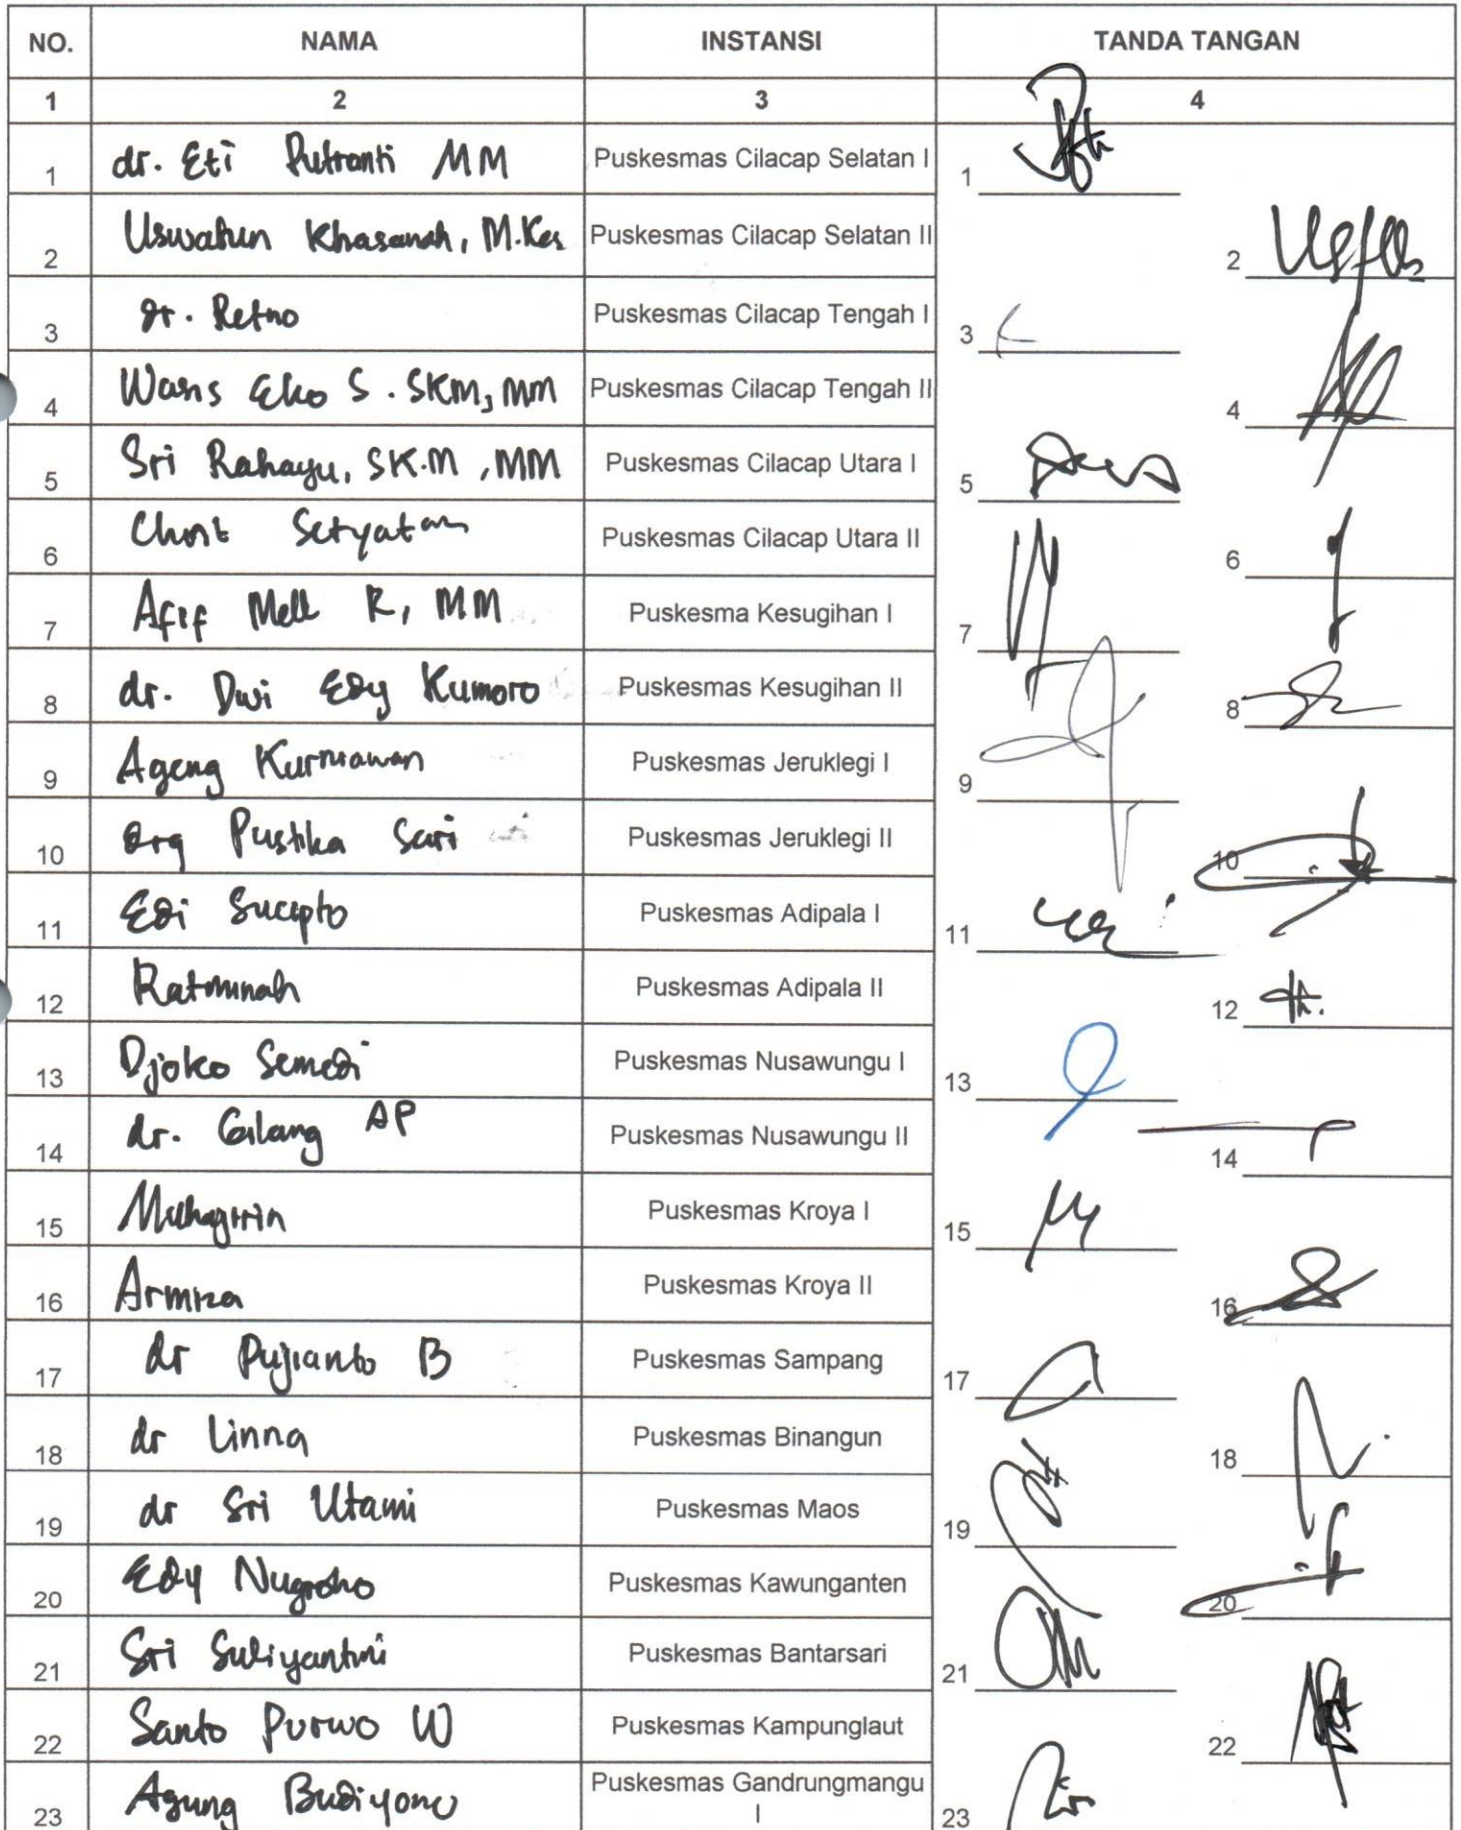 NO. NAMA INSTANSI TANDA TANGAN
1 2 3 4
1 dr. Eti Putranti MM Puskesmas Cilacap Selatan I 1
2 Uswatun Khasanah, M.Kes Puskesmas Cilacap Selatan II 2
3 dr. Retno Puskesmas Cilacap Tengah I 3
4 Eko S. SKM, MM Puskesmas Cilacap Tengah II 4
5 Sri Rahayu, SK.M, MM Puskesmas Cilacap Utara I 5
6 Puskesmas Cilacap Utara II 6
7 Afif R, MM Puskesma Kesugihan I 7
8 dr. Dwi Edy Kumoro Puskesmas Kesugihan II 8
9 Ageng Kurniawan Puskesmas Jeruklegi I 9
10 drg Pustika Sari Puskesmas Jeruklegi II 10
11 Edi Sucipto Puskesmas Adipala I 11
12 Ratminah Puskesmas Adipala II 12
13 Djoko Semedi Puskesmas Nusawungu I 13
14 dr. Gilang AP Puskesmas Nusawungu II 14
15 Puskesmas Kroya I 15
16 Armiza Puskesmas Kroya II 16
17 dr Pujianto B Puskesmas Sampang 17
18 dr Linna Puskesmas Binangun 18
19 dr Sri Utami Puskesmas Maos 19
20 Edy Nugroho Puskesmas Kawunganten 20
21 Sri Suliyantini Puskesmas Bantarsari 21
22 Santo Purwo W Puskesmas Kampunglaut 22
23 Agung Budiyono Puskesmas Gandrungmangu 23
I